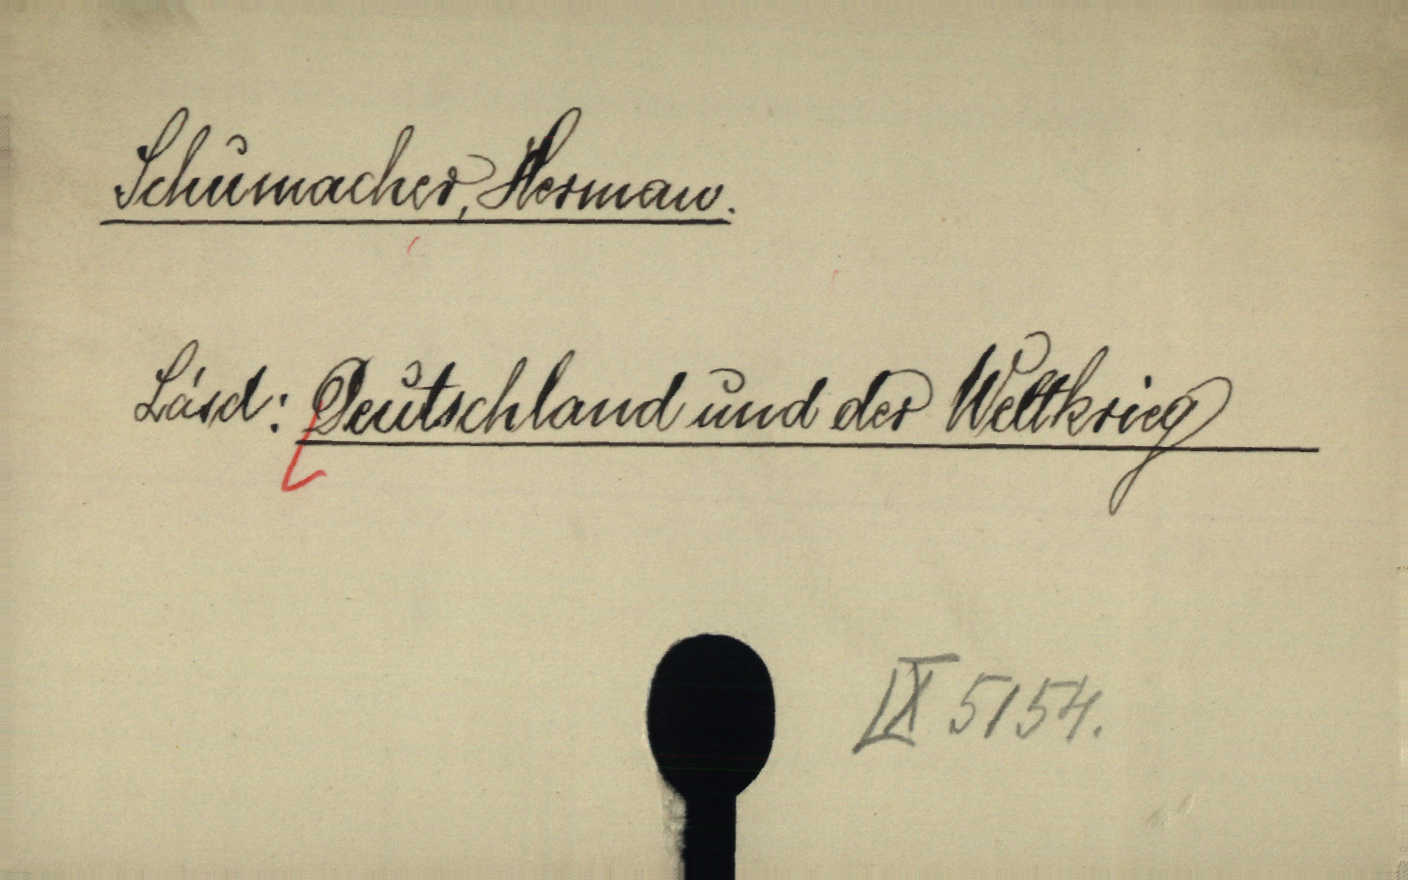 Schumacher, Herman.
Lásd: Deutschland und der Weltkrieg
IX 5154.